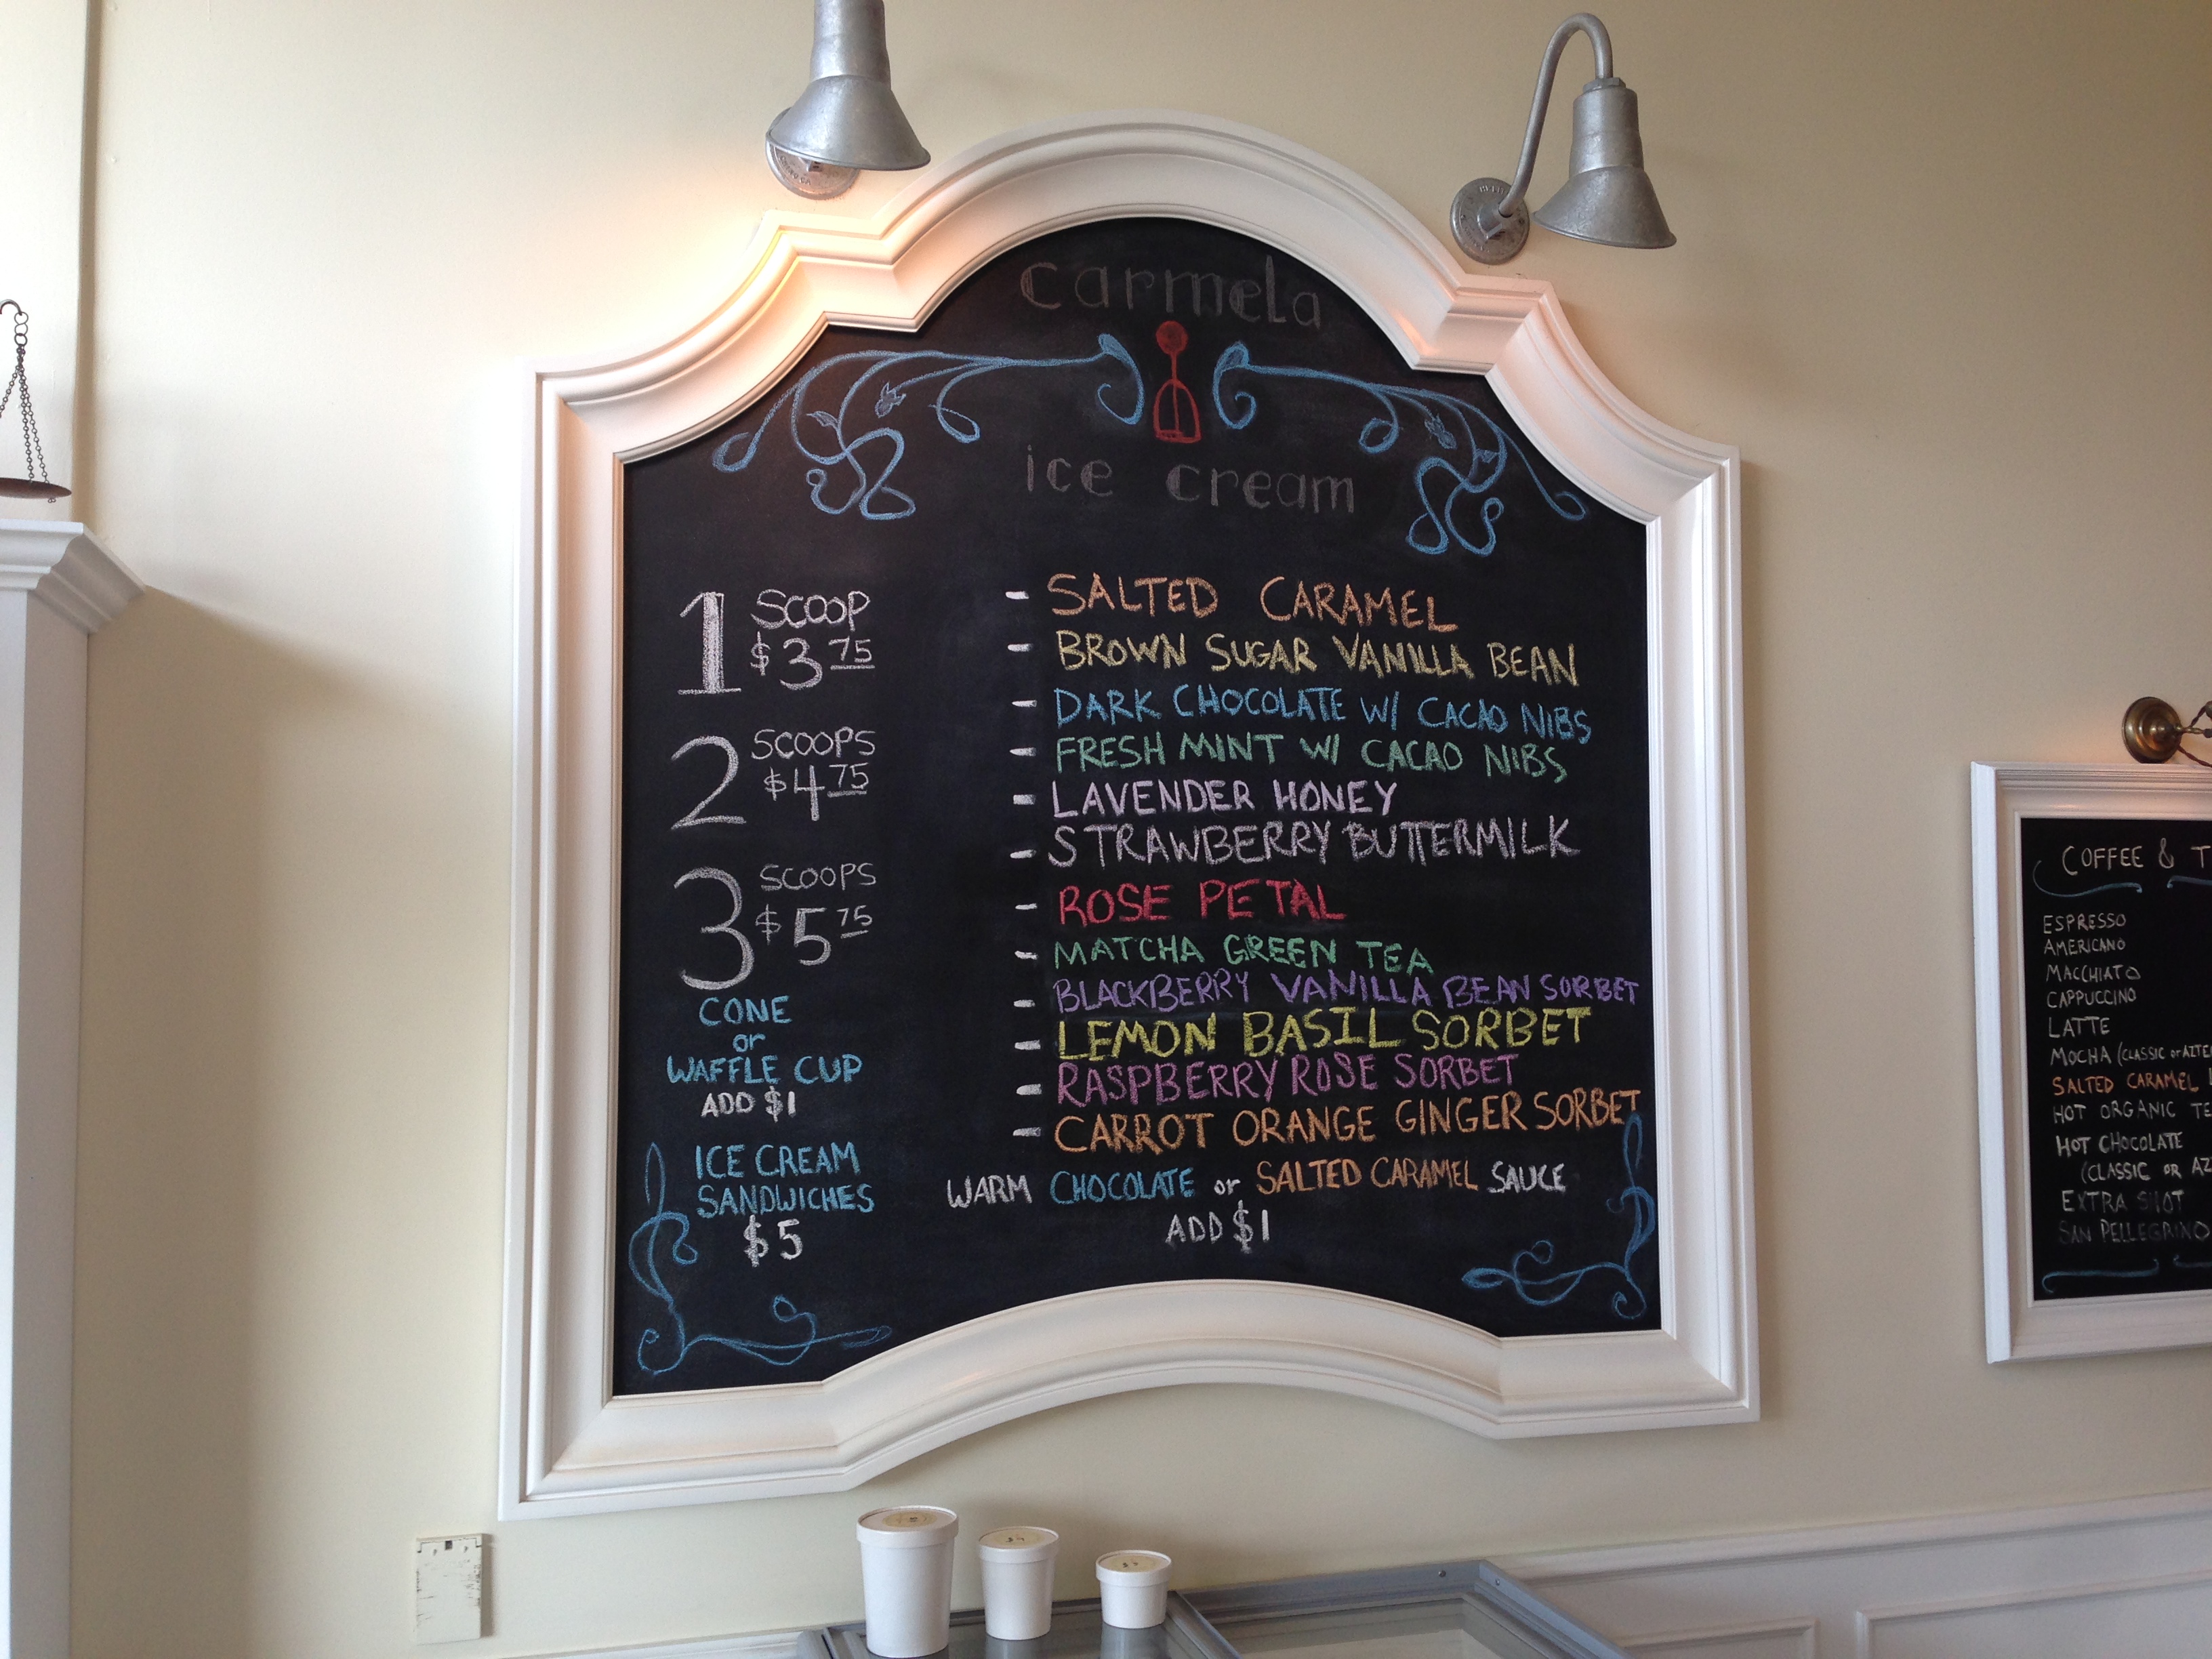 carmela
ice cream
1 SCOOP
$3 75
2 SCOOPS
$4 75
3 SCOOPS
$5 75
CONE
or
WAFFLE CUP
ADD $1
ICE CREAM
SANDWICHES
$5
- SALTED CARAMEL
- BROWN SUGAR VANILLA BEAN
- DARK CHOCOLATE W/ CACAO NIBS
- FRESH MINT W/ CACAO NIBS
- LAVENDER HONEY
- STRAWBERRY BUTTERMILK
- ROSE PETAL
- MATCHA GREEN TEA
- BLACKBERRY VANILLA BEAN SORBET
- LEMON BASIL SORBET
- RASPBERRY ROSE SORBET
- CARROT ORANGE GINGER SORBET
WARM CHOCOLATE or SALTED CARAMEL SAUCE
ADD $1
COFFEE & T
ESPRESSO
AMERICANO
MACCHIATO
CAPPUCCINO
LATTE
MOCHA (CLASSIC or AZTE
SALTED CARAMEL
HOT ORGANIC TE
HOT CHOCOLATE
(CLASSIC OR AZ
EXTRA SHOT
SAN PELLEGRINO